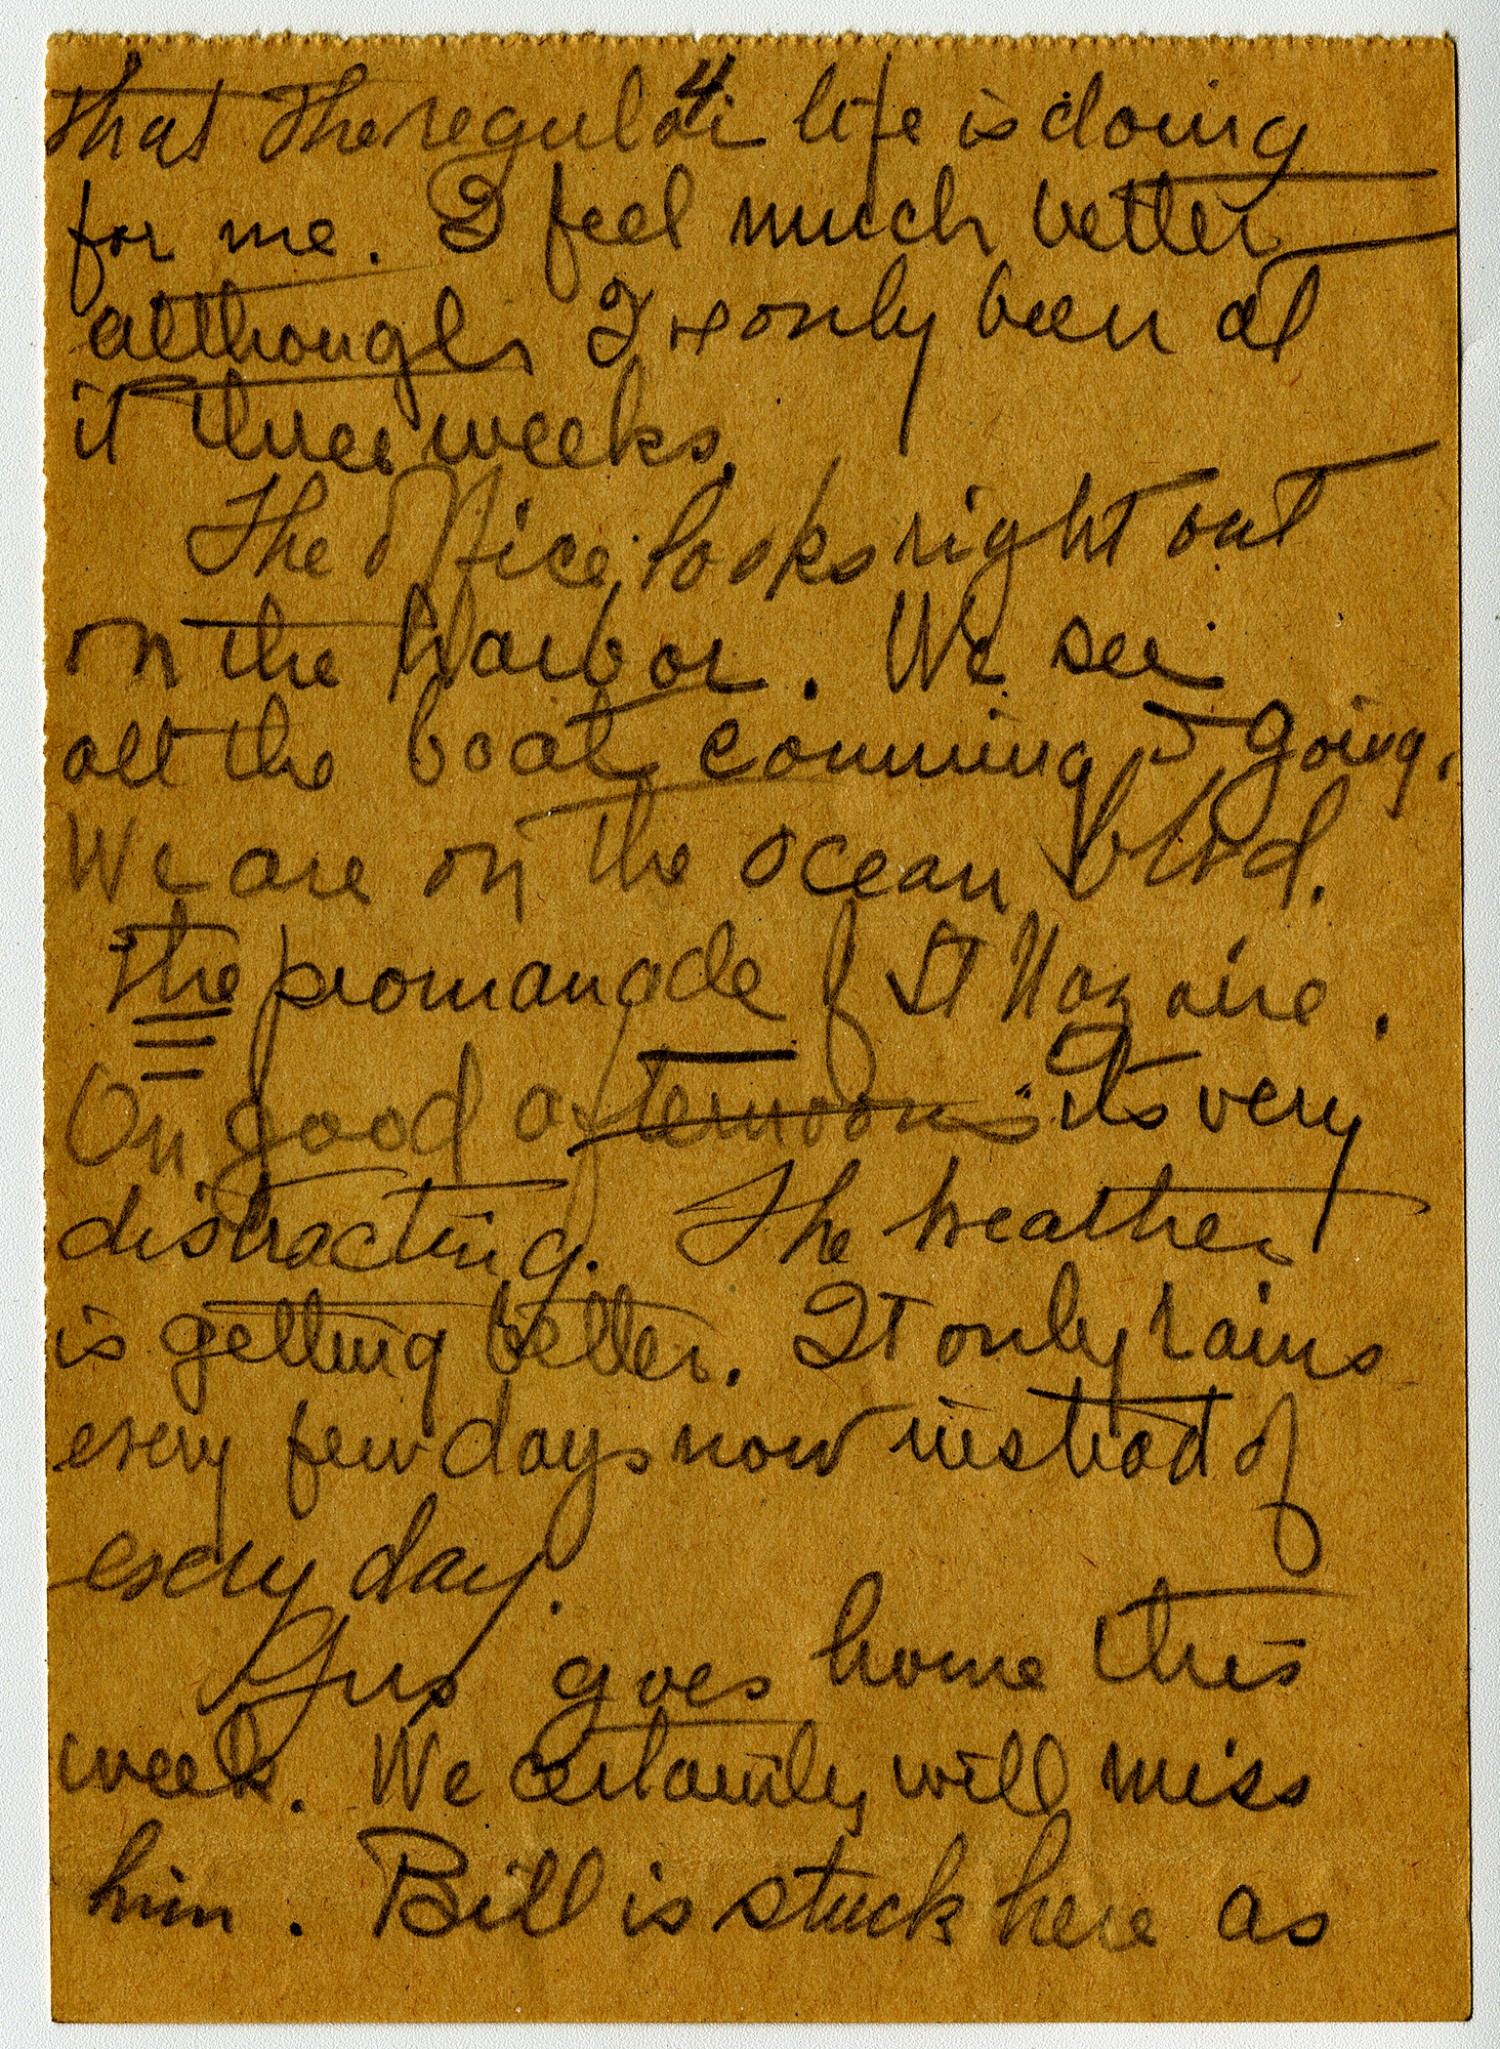 4
that the regular life is doing
for me. I feel much better
although I only been at
it three weeks.
The office looks right out
on the harbor. We see
all the boats comming & going.
We are on the ocean blvd.
the promanade of St Nazaire.
On good afternoons its very
distracting. The weather
is getting better. It only rains
every few days now instead of
every day.
Gus goes home this
week. We certainly will miss
him. Bill is stuck here as